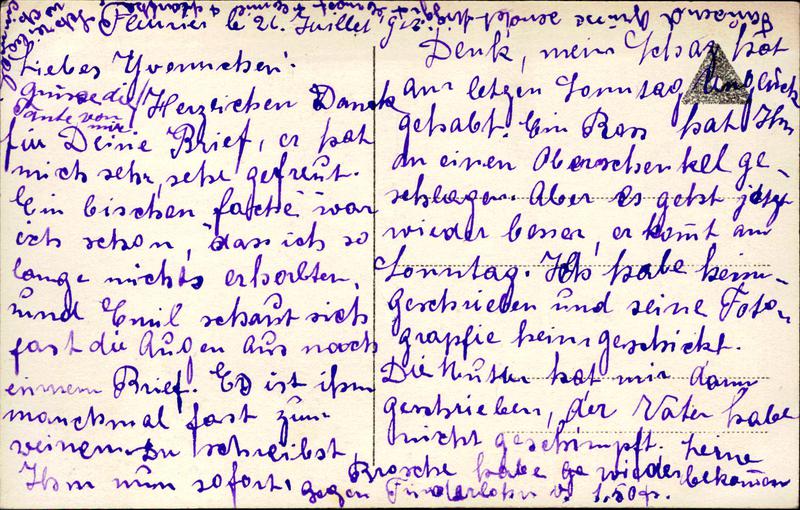 Fleurier le 26. Juillet
Liebes Yvonnchen!
Grüsse die
Tante von
mir
Herzeichen Dank
für Deine Brief, er hat
mich sehr, sehr gefreut.
Ein bischen fasche war
ich schon, dass ich so
lange nichts erhorlten,
und Emil schaut sich
fast die Augen aus nach
einem Brief. Es ist ihm
manchmal fast zum
weinem. Du schreibst
Ihm nun sofort,
Denk, mein Schaz hat
am letzen Sonntag Unglück
gehabt. Ein Ross hat Ihn
an einen Oberschenkel ge-
schlagen. Aber es geht jetzt
wieder besser, er kom̄t am
Sonntag. Ich habe heim-
geschrieben und seine Foto-
grapfie heimgeschickt.
Die Mutter hat mir dann
geschrieben, der Vater habe
nicht geschimpft. Deine
Brosche habe ge wieder bekommen
gegen Finderlohn v. 1,50 fr.
Tausend Grüsse sendet